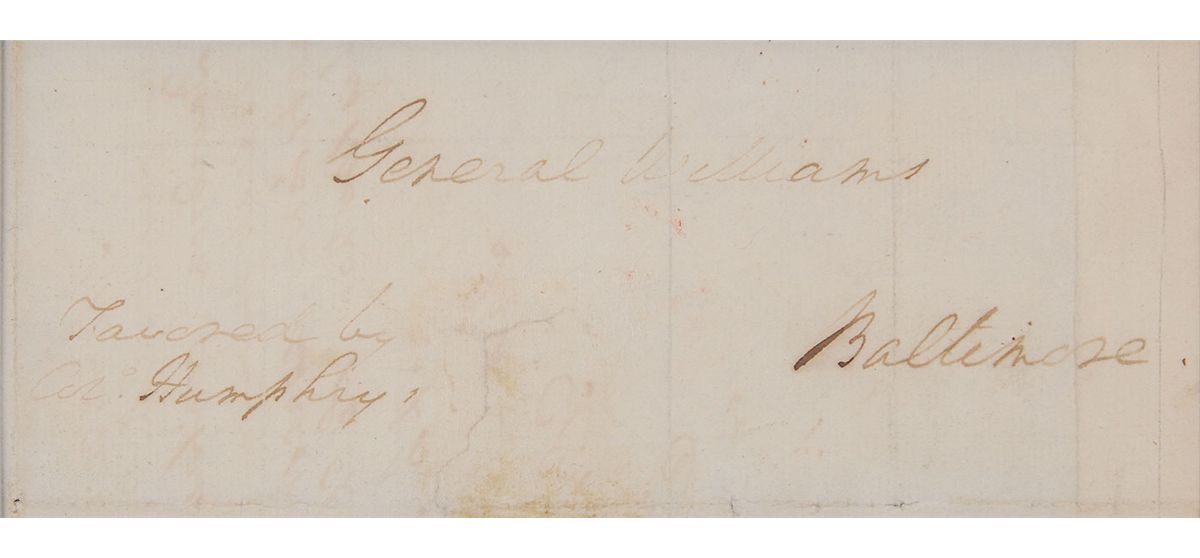 General Williams
Favored by
Baltimore.
Colo. Humphrys